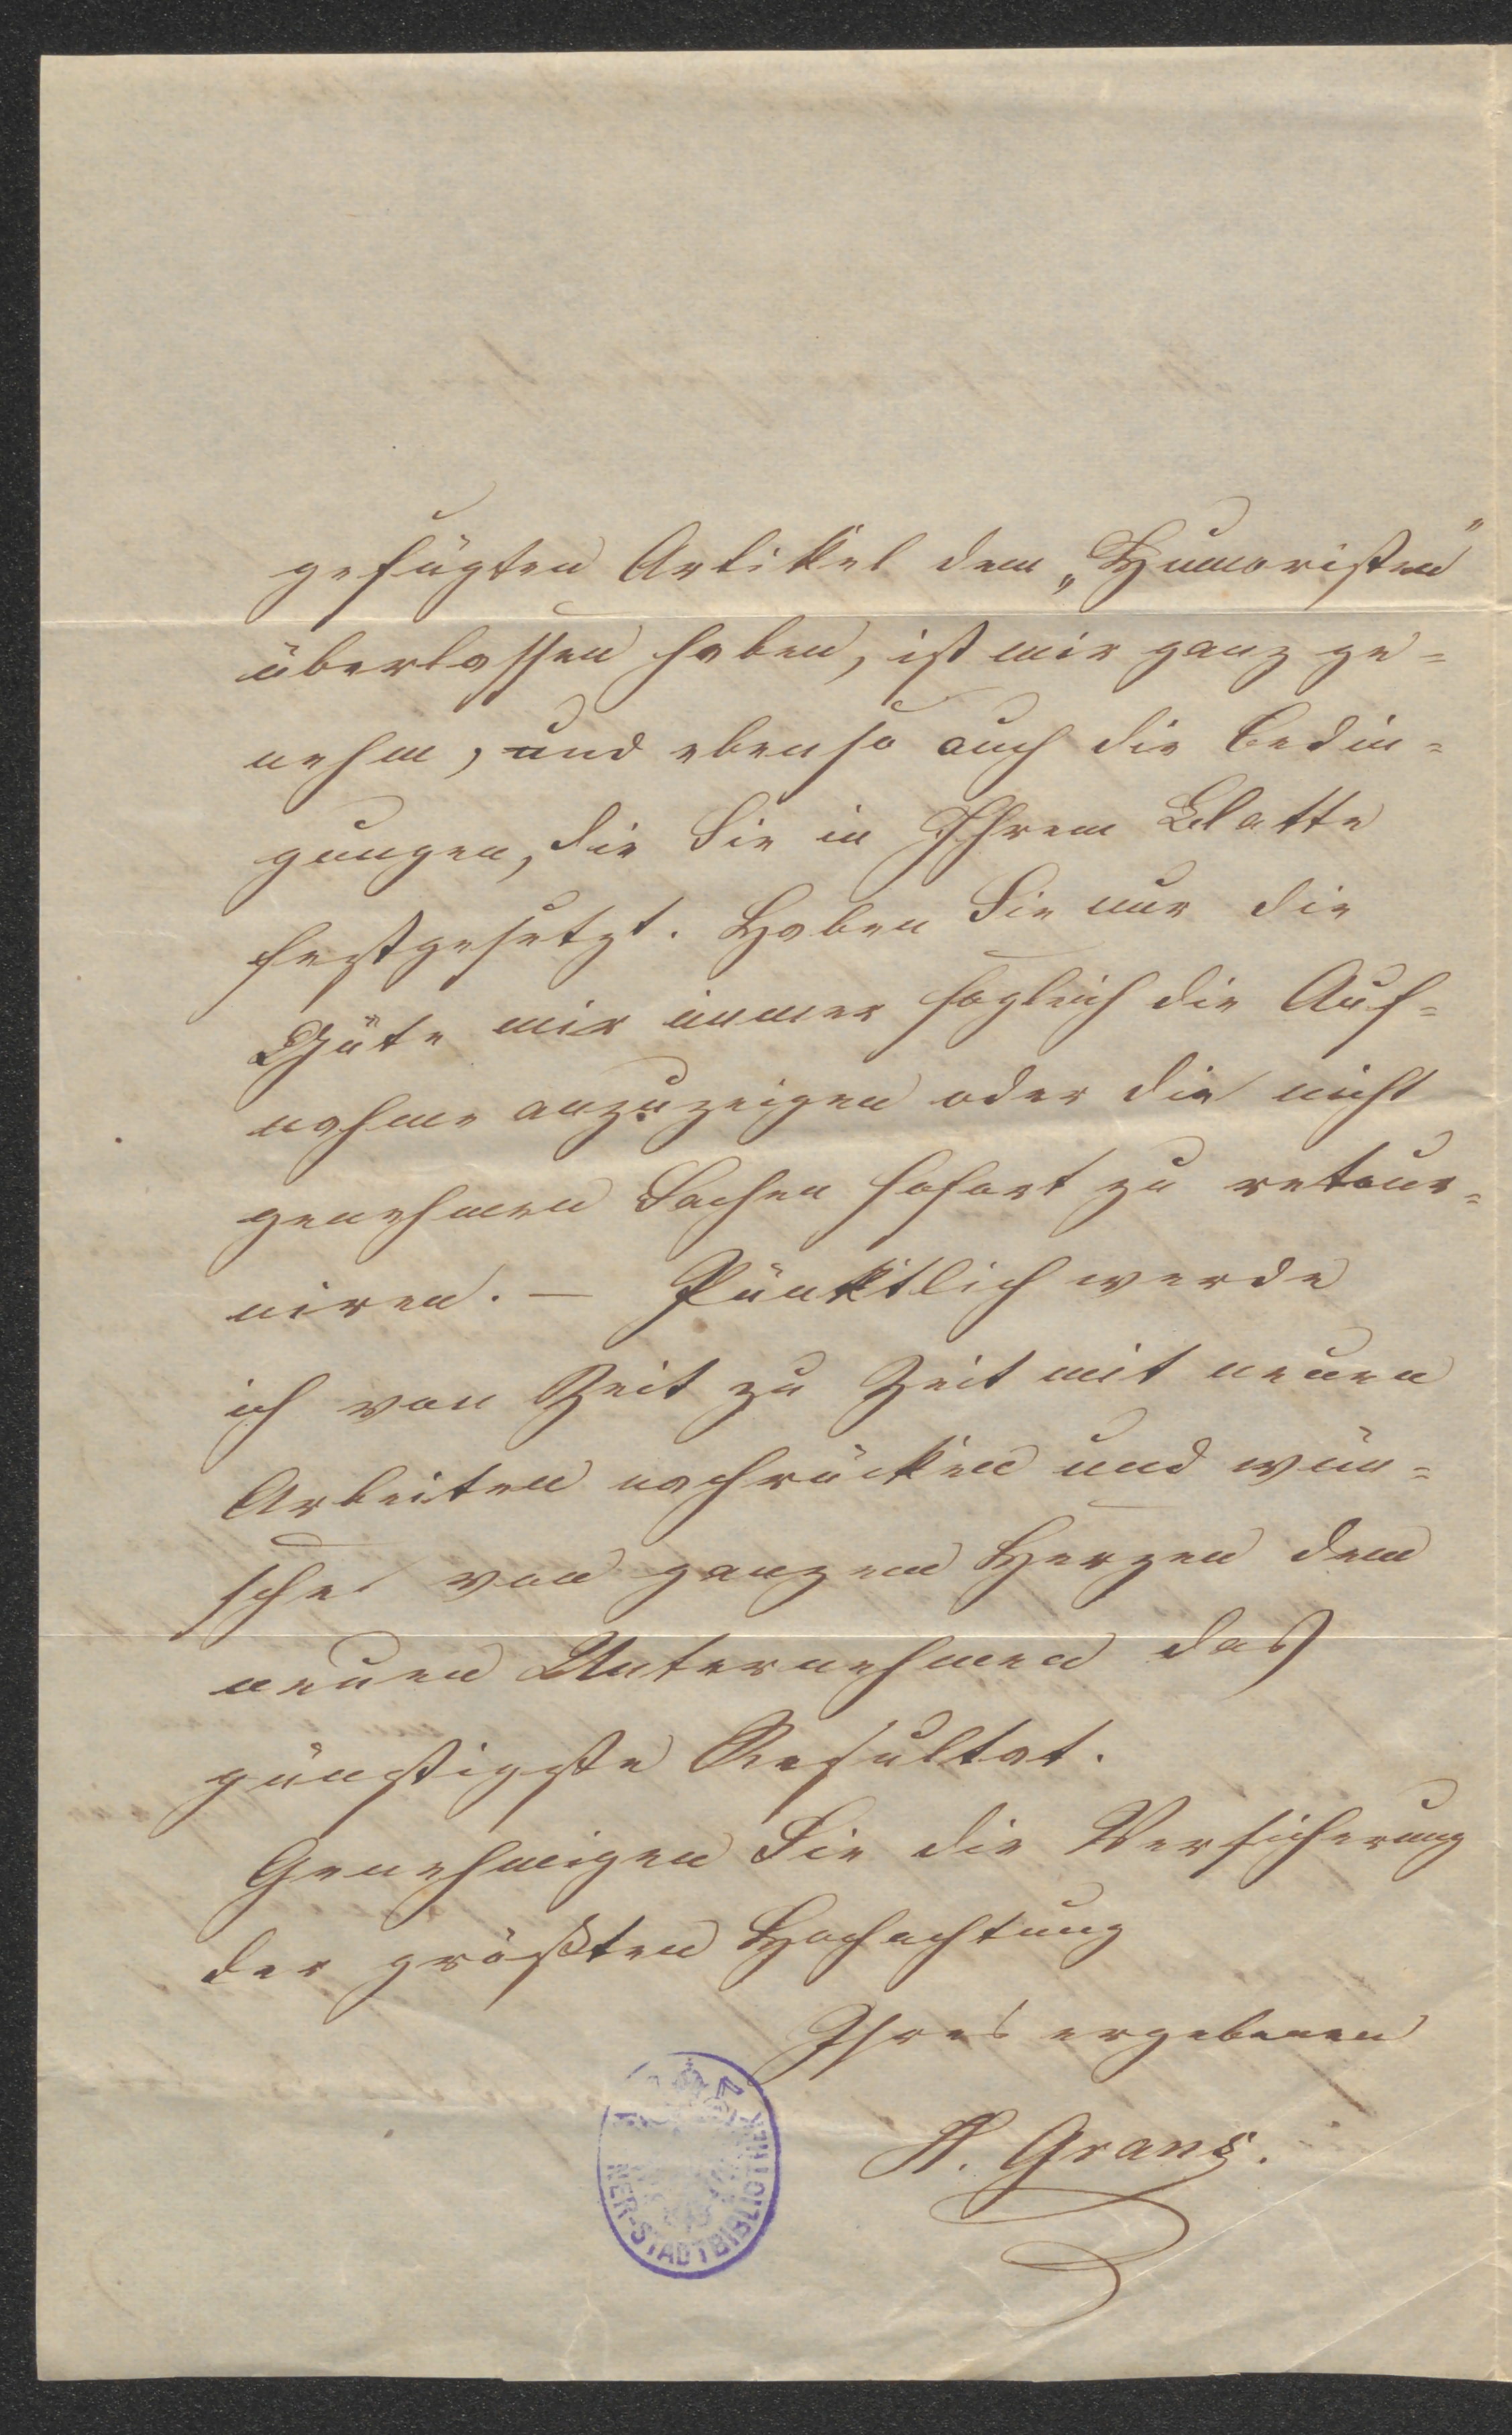 gefügten Artikel dem „Humoristen"
überlassen haben, ist mir ganz ge=
nehm, und ebenso auch die Bedin=
gungen, die Sie in Ihrem Blatte
festgesetzt. Haben Sie nur die
Güte mir immer sogleich die Auf=
nahme anzuzeigen oder die nicht
genehmen Sachen sofort zu retour=
niren. — Pünktlich werde
ich von Zeit zu Zeit mit neuen
Arbeiten nachrücken und wün=
sche von ganzem Herzen dem
neuen Unternehmen das
günstigste Resultat.
Genehmigen Sie die Versicherung
der größten Hochachtung
Ihres ergebenen
H. Grans.
NER-STADTBIBLIOTHEK